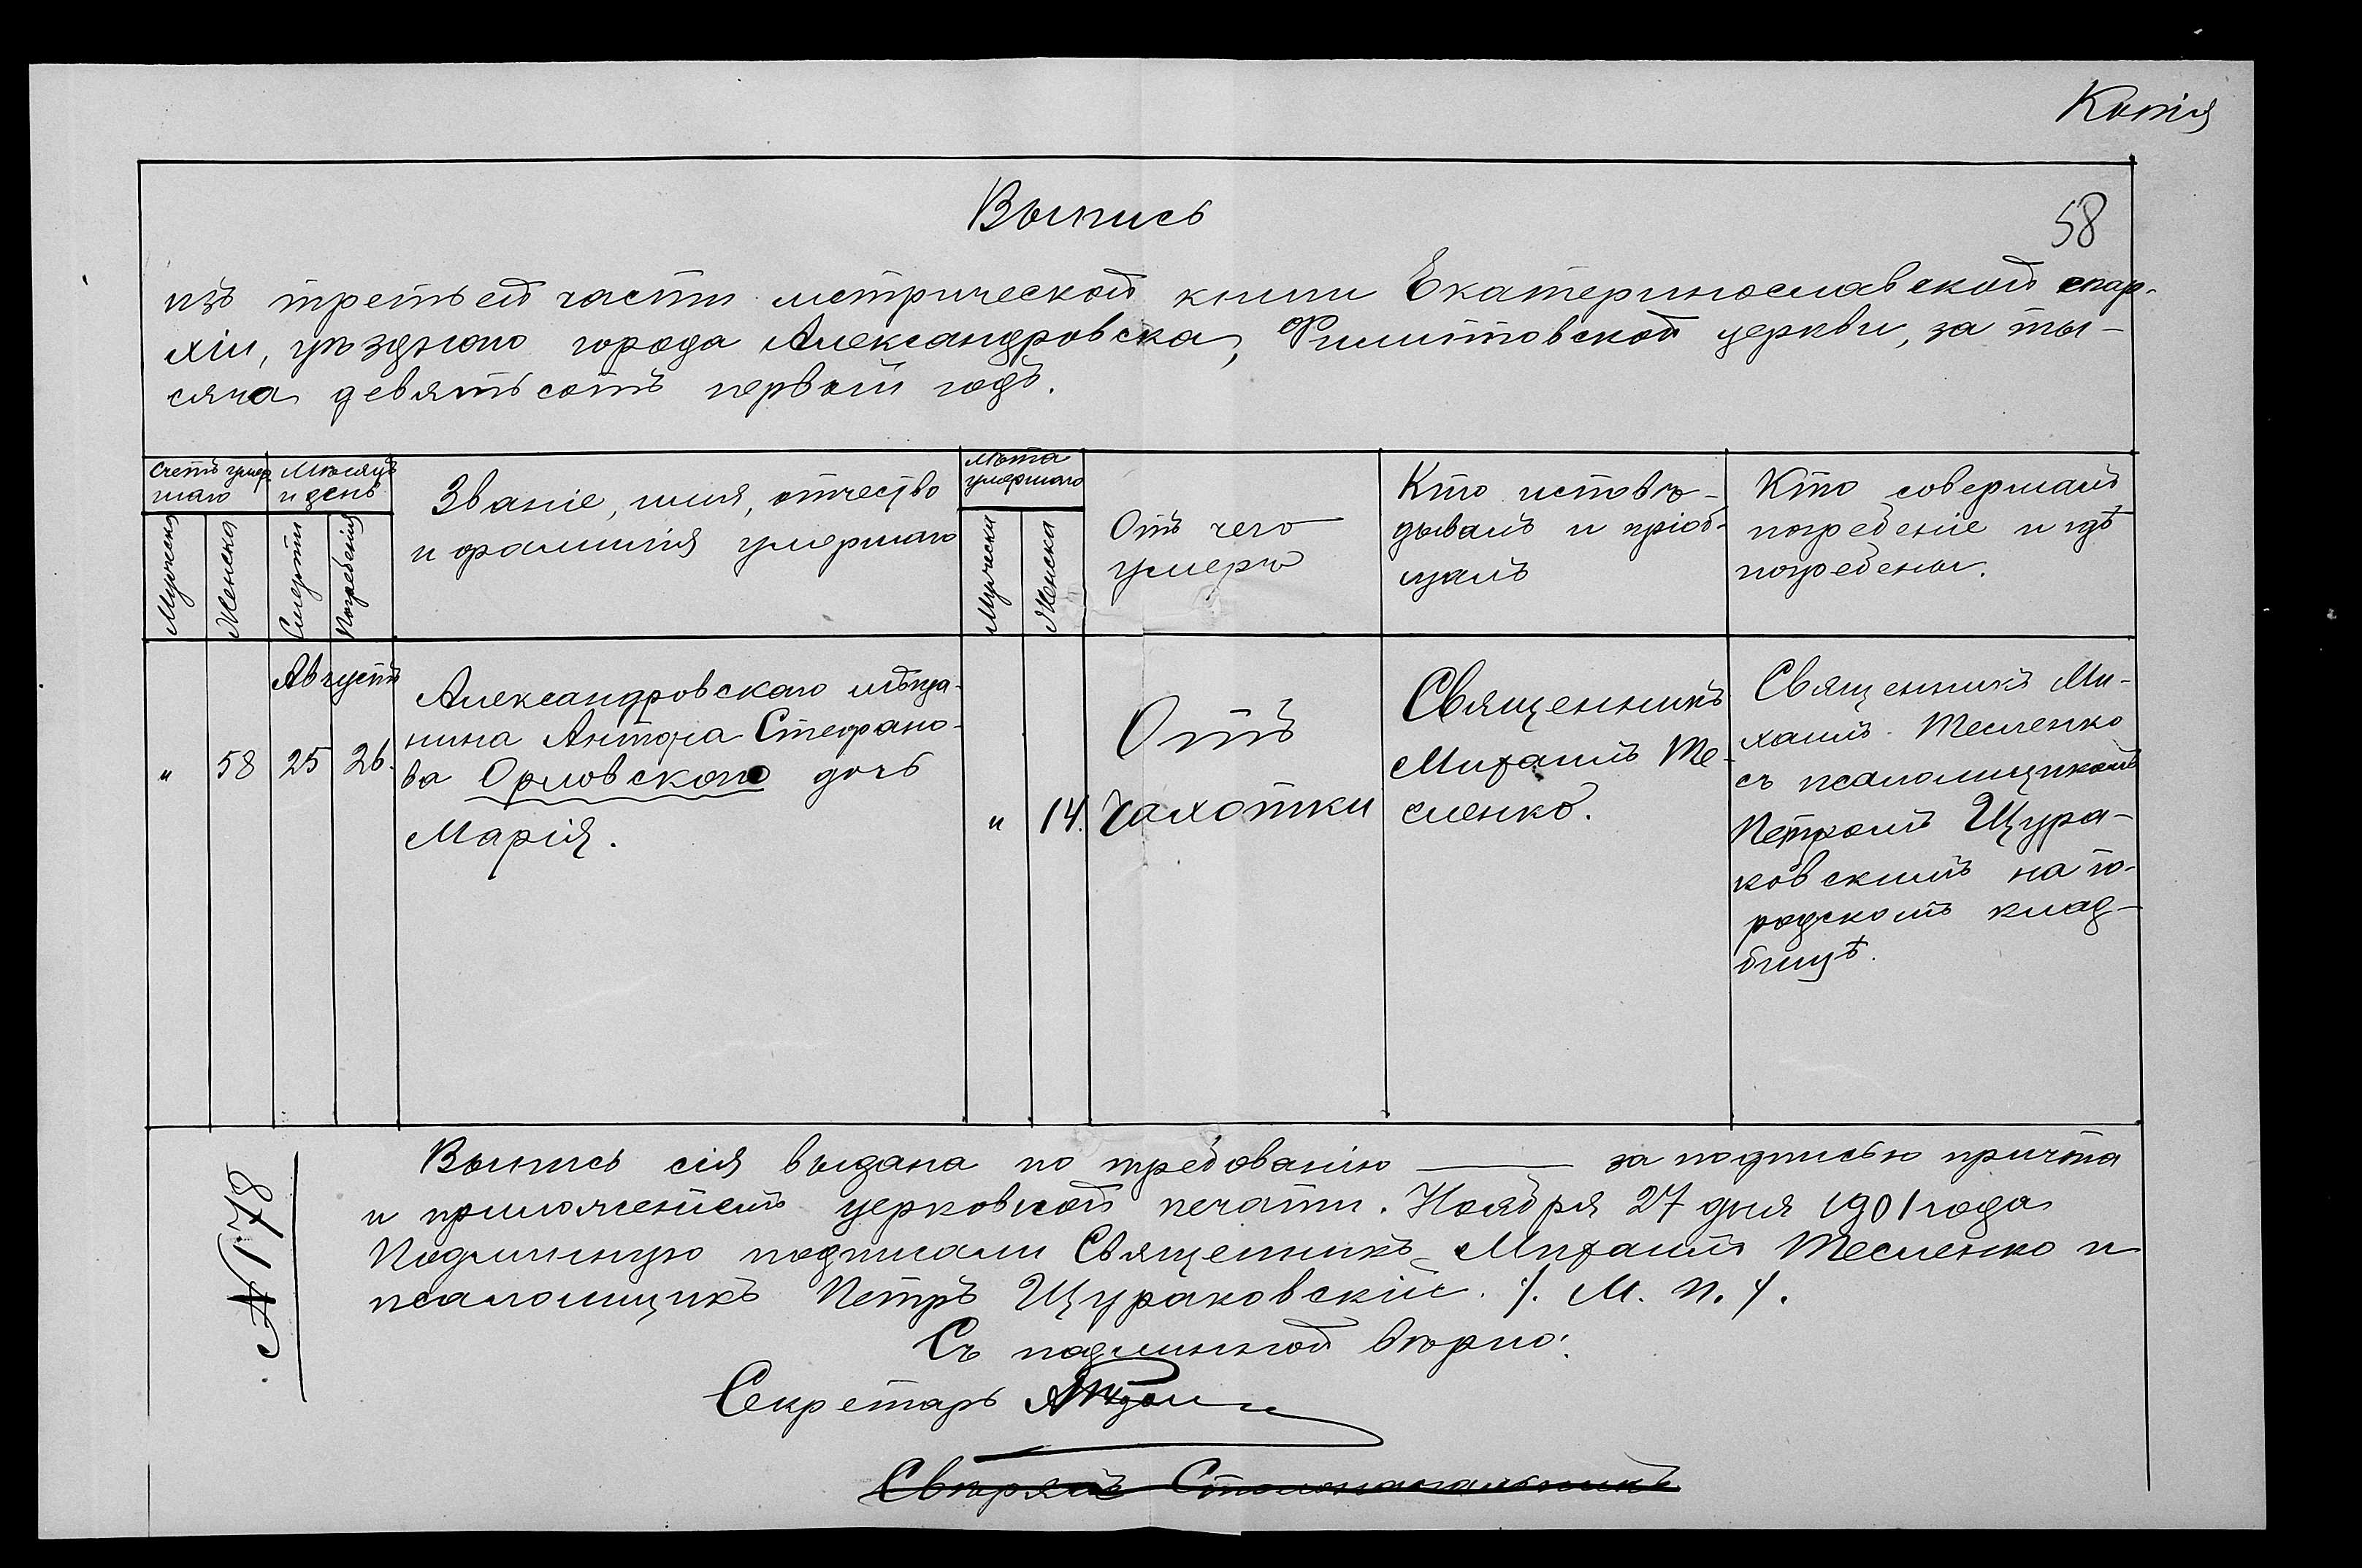 Копія
Выпись
58
изъ третьей части метрической книги Екатеринославской епар-
хіи, уѣзднаго города Александровска, Филипповской церкви, за ты-
сяча девятьсотъ первый годъ.
Счетъ умер
шаго
Мѣсяцъ
и день
Званіе, имя, отчество
и фамилія умершаго
Лѣта
умершаго
Отъ чего
умеръ
Кто исповѣ-
дывалъ и пріоб-
щалъ
Кто совершалъ
погребеніе и гдѣ
погребены.
Мужчина
Женска
Смерти
Погребенія
Мужчска
Женска
Августъ
" 58 25 26.
Александровскаго мѣща-
нина Антона Стефано-
ва Орловскаго дочь
Марія.
" 14.
Отъ
чахотки
Священникъ
Михаилъ Те-
сленко.
Священникъ Ми-
хаилъ Тесленко
съ псаломщикомъ
Петромъ Щура-
ковскимъ на го-
родскомъ клад-
бищѣ.
№ 178
Выпись сія выдана по требованію —— за подписью причта
и приложеніемъ церковной печати. Ноября 27 дня 1901 года
Подлинную подписали Священникъ Михаилъ Тесленко и
псаломщикъ Петръ Щураковскій. /. М. П. /.
Съ подлинной вѣрно:
Секретарь
Свѣрялъ Столоначальникъ